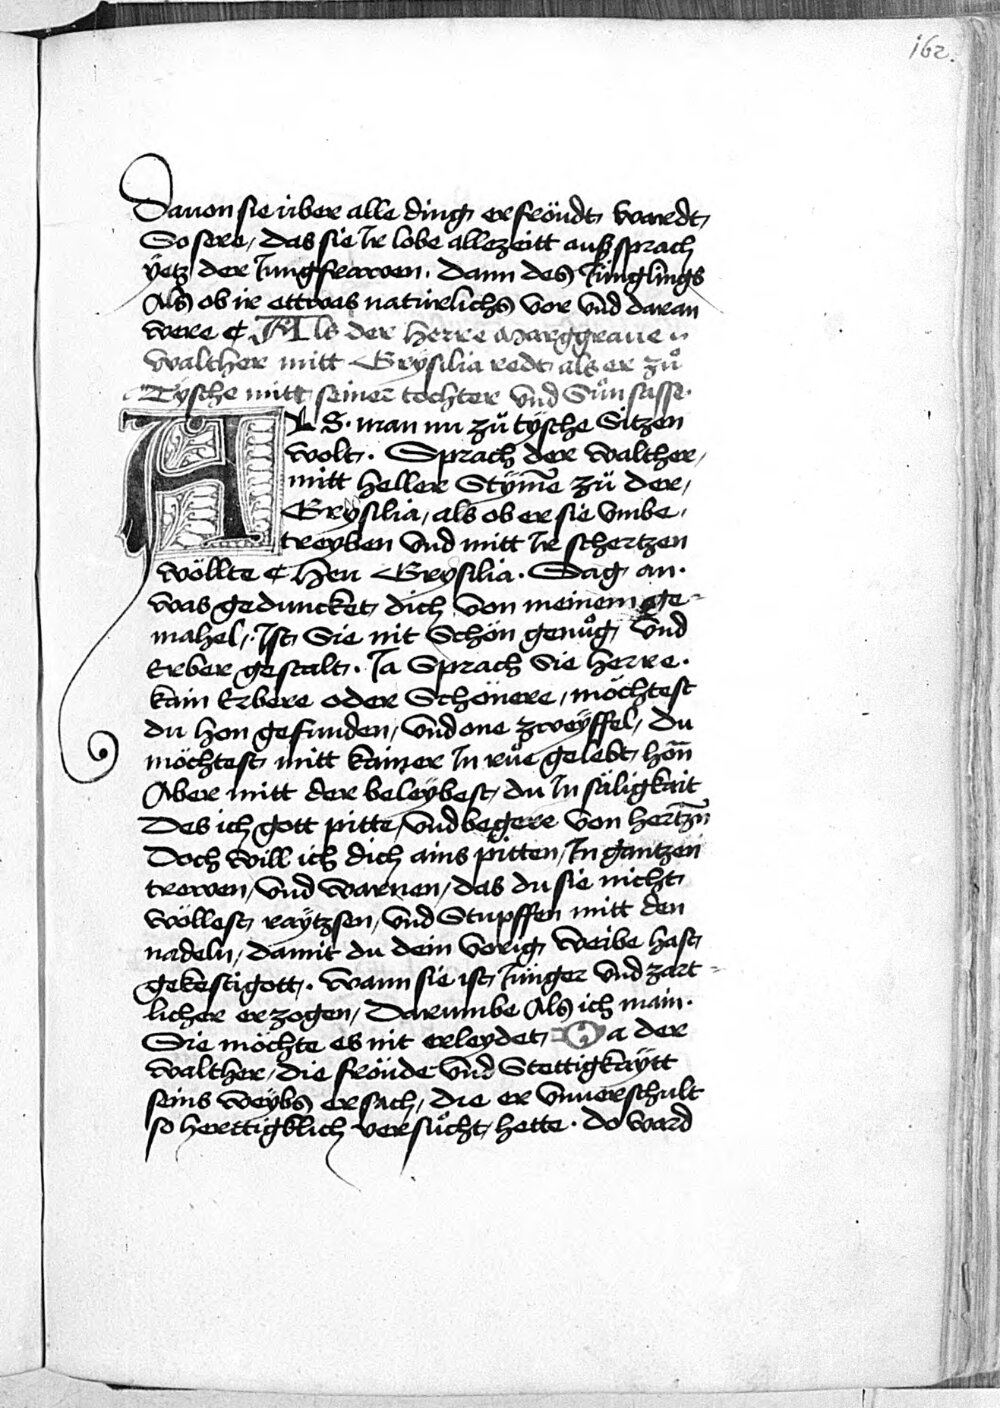 162.
Dauon sie über alle ding erfröudt wardt,
So sere, das sie Ir lobe allezeitt aussprach
yetz der Iungfrawen. dann des Iünglings
Als ob ir ettwas naturlichs vor vnd daran
were ¢ Als der herre Marggraue
walther mitt Grysilia redt als er zů
Tysche mitt seiner tochter vnd Sůn sasse.
ALS. man nu zů tysche Sitzen
wolt. Sprach der walther,
mitt heller Stym̄e zů der,
Grysilia, als ob er sie vmbe,
treyben vnd mitt Ir schertzen
wöllte ¢ Heu Grysilia. Sag an.
was geduncket dich von meinem ge-
mahel, Ist Sie nit Schön genůg vnd
Erber gestalt. Ia Sprach Sie herre.
kain Erbere oder Schönere, möchtest
du hon gefunden, vnd one zweyffel, du
möchtest mitt kainer In růe gelebt hon̄
Aber mitt der beleybest, du In säligkait
Des ich gott pitte, vnd begere von hertzn̄
Doch will ich dich ains pitten, In gantzen
trewen, vnd warnen, das du sie nicht
wöllest raytzsen, vnd Stupffen mitt den
nadeln, damit du dein vorig weibe hast
gekestigott. wann sie ist Iunger vnd zart-
licher erzogen, Darumbe Als ich main.
Sie möchte es nit erleydet, Da der
walther, die fröude vnd Stettigkaytt
seins weybs ersach, die er vnuerschult
so herttigklich versůcht hette. do ward